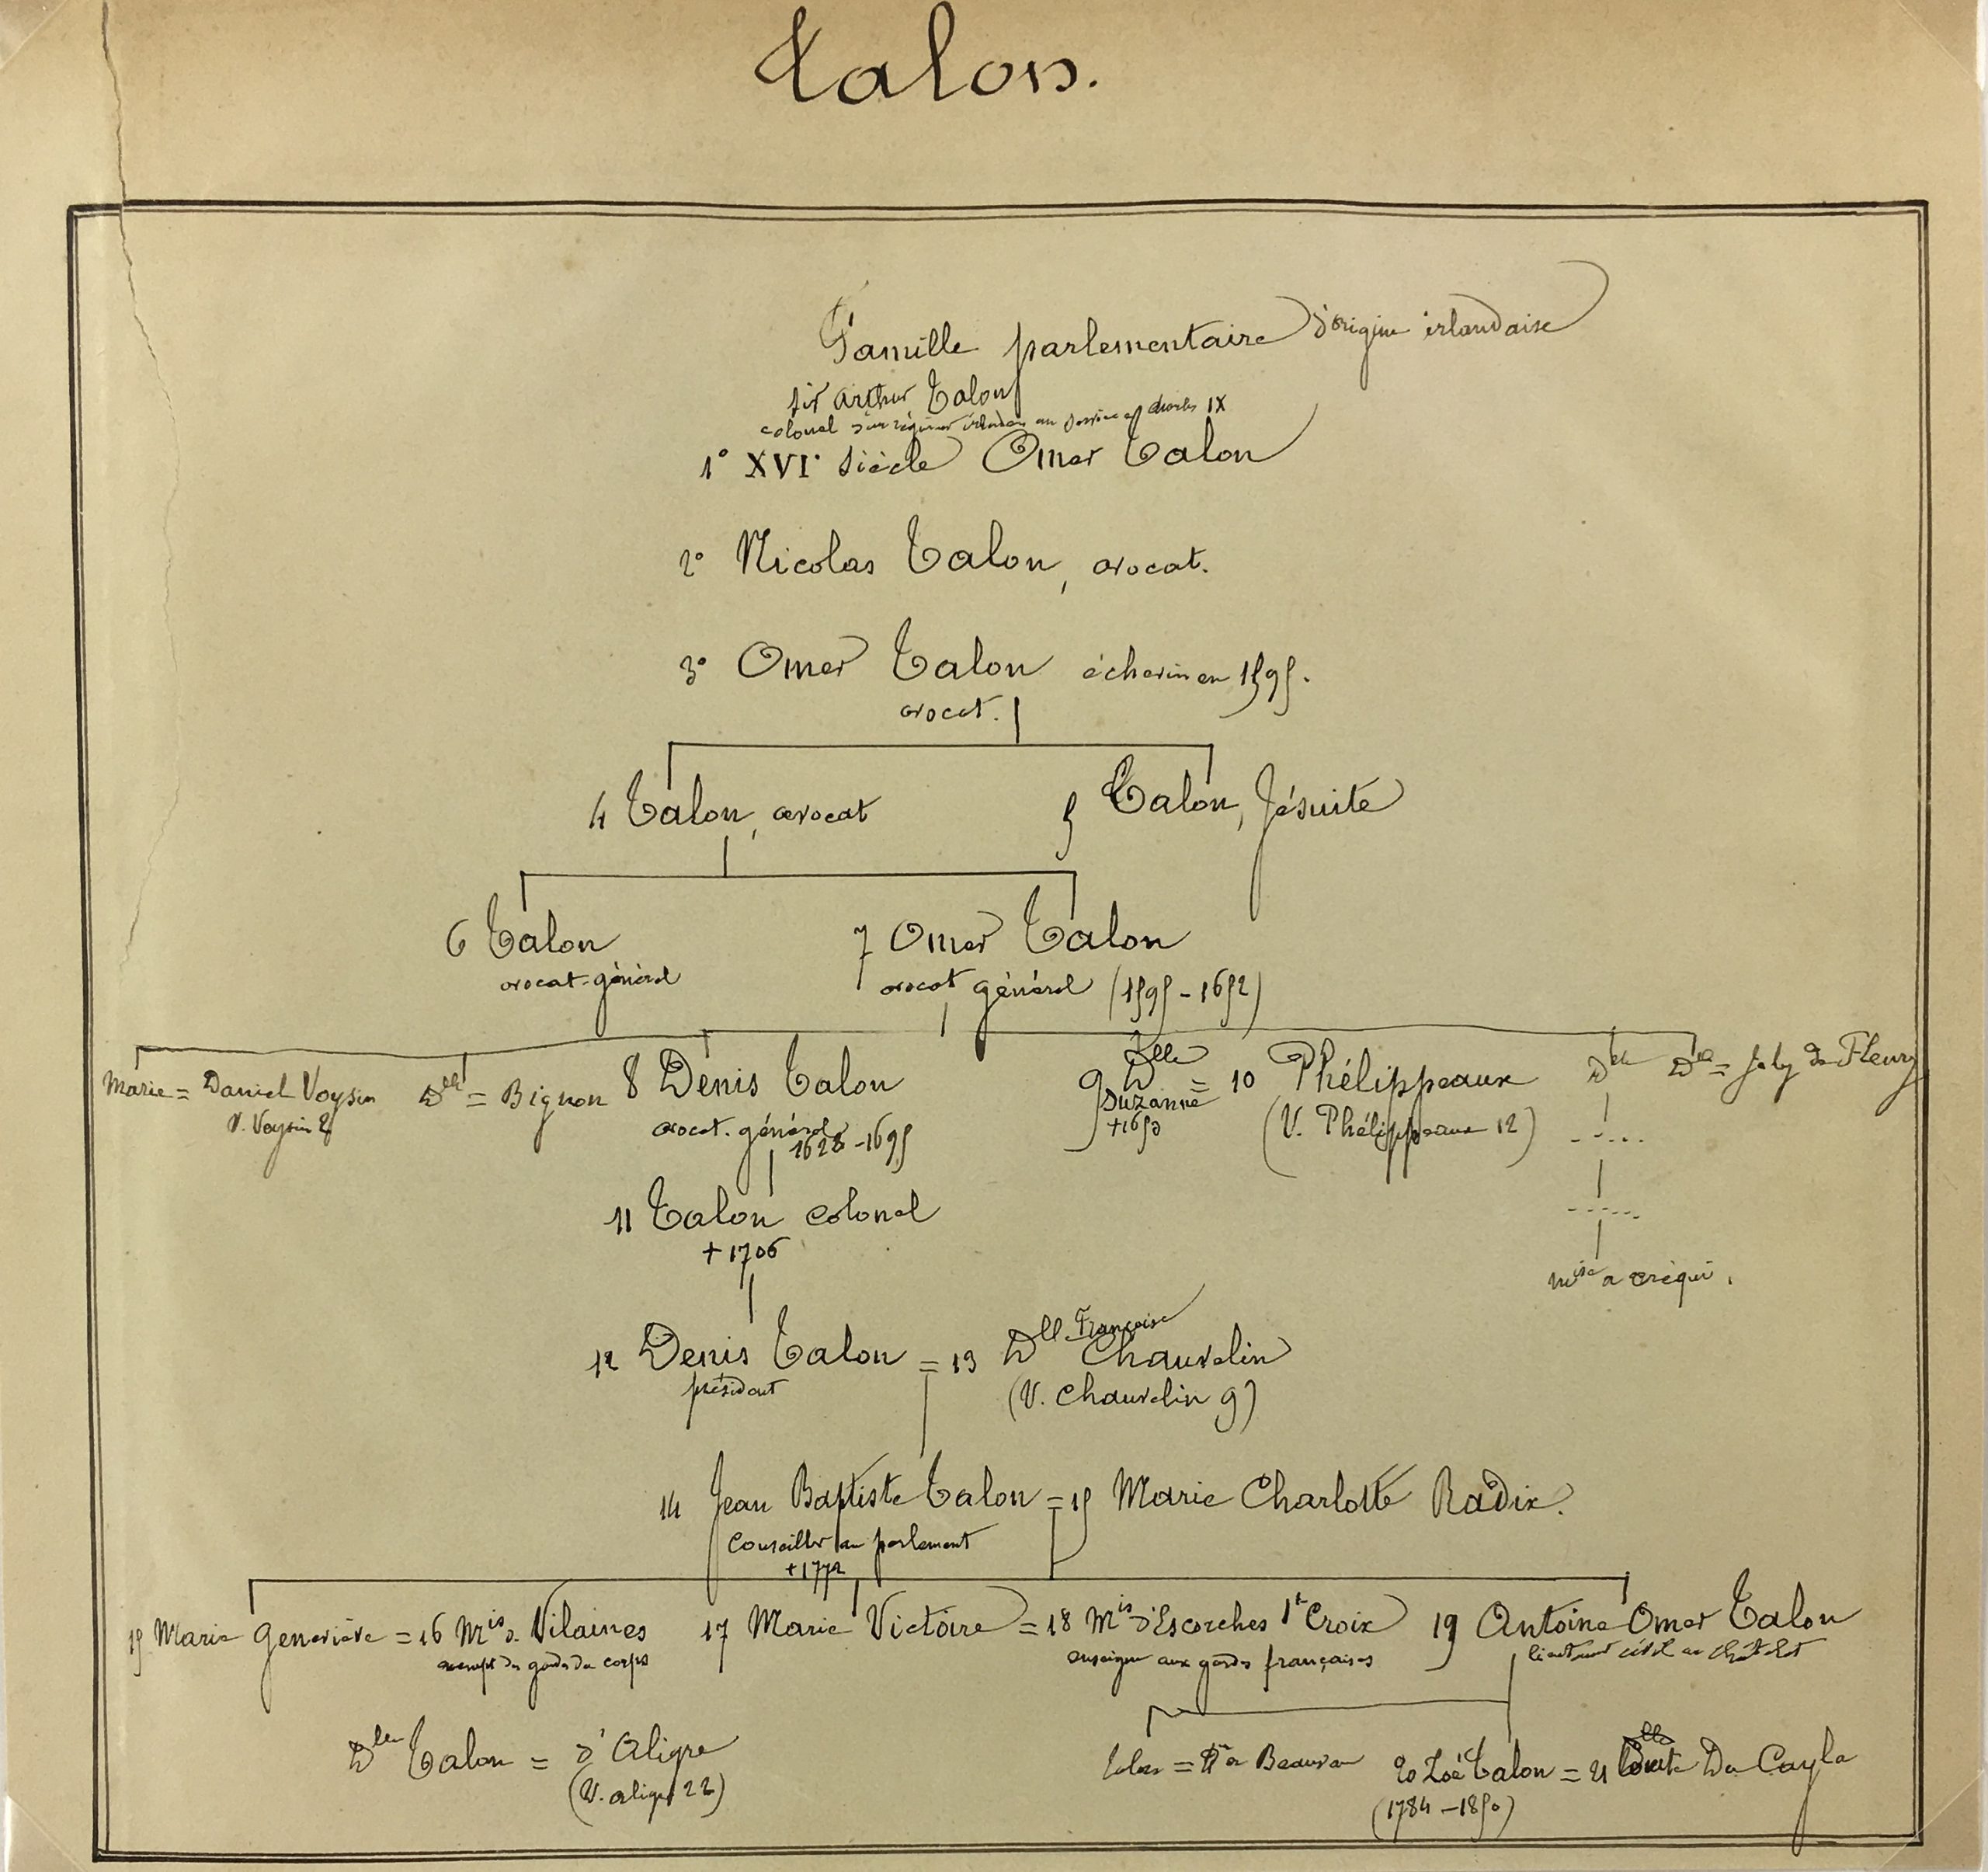 Talon.
Famille parlementaire d'origine irlandaise
Sir Arthur Talon
colonel d'un régiment irlandais au service de Charles IX
1° XVI° siècle Omer Talon
2° Nicolas Talon, avocat.
3° Omer Talon échevin en 1595.
avocat.
4 Talon, avocat 5 Talon, Jésuite
6 Talon 7 Omer Talon
avocat-général avocat général (1595-1652)
Marie = Daniel Voysin Dlle = Bignon 8 Denis Talon 9 Dlle Suzanne = 10 Phélippeaux Dlle Dlle = Joly de Fleury
V. Voysin 2 avocat-général +1650 (V. Phélippeaux 12)
1628-1695
11 Talon colonel
+1706
mise a créqui.
12 Denis Talon = 13 Dlle Françoise Chauvelin
président (V. Chauvelin 9)
14 Jean Baptiste Talon = 15 Marie Charlotte Radix.
Conseiller au parlement
+1772
15 Marie Geneviève = 16 Mis de Vilaines 17 Marie Victoire = 18 Mis d'Escorches Ste Croix 19 Antoine Omer Talon
exempt des gardes du corps enseigne aux gardes françaises lieutenant civil au châtelet
Dlle Talon = d'Aligre = de Beauvau 20 Zoé Talon = 21 Du Cayla
(V. aligre 22) (1784-1850)